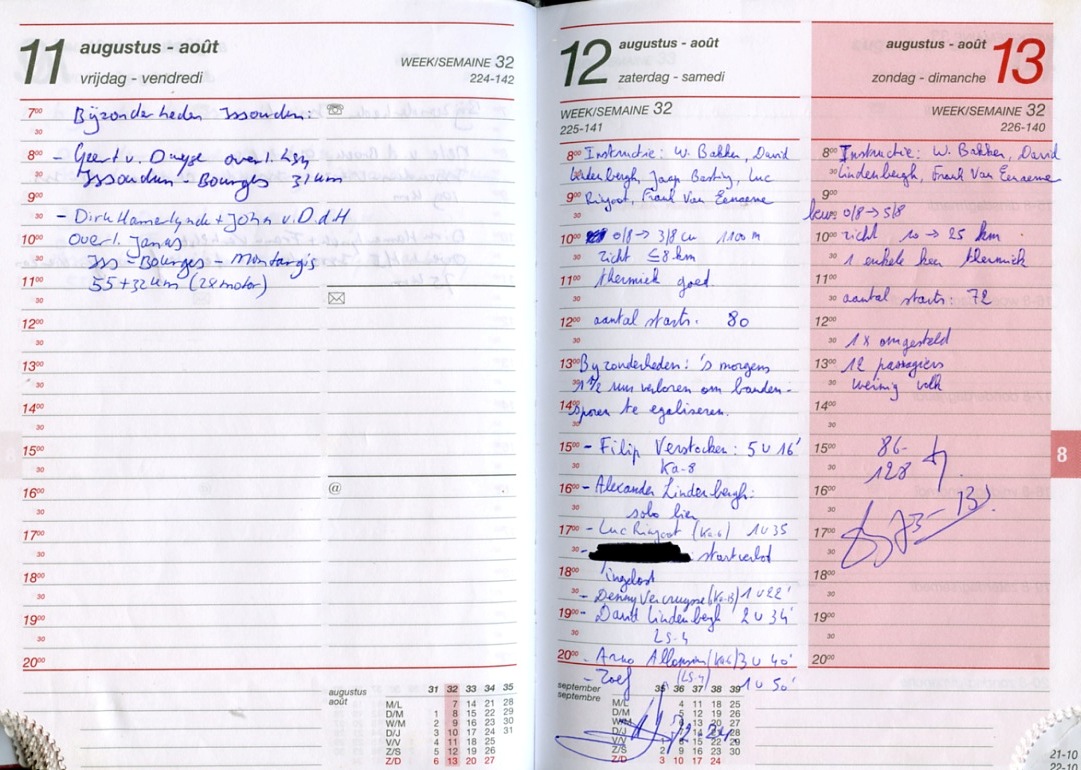 11
augustus - août
vrijdag - vendredi
WEEK/SEMAINE 32
224-142
7⁰⁰ Bijzonderheden Issoudun:
8⁰⁰ - Geert v. overl. Lsn
Issoudun - Bourges 31 km
- Dirk Hamerlynck + John v.D.d.H
10⁰⁰ overl. Janus
Iss - Bourges - Montargis
11⁰⁰ 55+32 km (28 motor)
12⁰⁰
13⁰⁰
14⁰⁰
15⁰⁰
16⁰⁰ @
17⁰⁰
18⁰⁰
19⁰⁰
20⁰⁰
augustus 31 32 33 34 35
août
M/L 7 14 21 28
D/M 1 8 15 22 29
W/M 2 9 16 23 30
D/J 3 10 17 24 31
V/V 4 11 18 25
Z/S 5 12 19 26
Z/D 6 13 20 27
12
augustus - août
zaterdag - samedi
WEEK/SEMAINE 32
225-141
8⁰⁰ Instructie: W. Bakker, David
Lindenbergh, Jaap Luc
9⁰⁰ Ringoot, Frank Van Eenaeme
10⁰⁰ 0/8 → 3/8 cu 1100 m
zicht ≤ 8 km
11⁰⁰ thermiek goed.
12⁰⁰ aantal starts: 80
13⁰⁰ Byzonderheden: 's morgens
1 1/2 uur verloren om banden-
14⁰⁰ sporen te egaliseren.
15⁰⁰ - Filip Verstocken: 5 u 16'
Ka-8
16⁰⁰ - Alexander Lindenbergh:
solo lier
17⁰⁰ - Luc Ringoot (Ka-6) 1 u 35
- startverbot
18⁰⁰ ingelost
- Denny Vercruysse (Ka-8) 1 u 22'
19⁰⁰ - David Lindenbergh 2 u 34'
LS-4
20⁰⁰ - Arno (Ka-6) 3 u 40'
- Zoef (LS-4) 1 u 50'
september 35 36 37 38 39
septembre
M/L 4 11 18 25
D/M 5 12 19 26
W/M 6 13 20 27
D/J 7 14 21 28
V/V 1 8 15 22 29
Z/S 2 9 16 23 30
Z/D 3 10 17 24
augustus - août
zondag - dimanche
13
WEEK/SEMAINE 32
226-140
8⁰⁰ Instructie: W. Bakker, David
Lindenbergh, Frank Van Eenaeme
9⁰⁰ 0/8 → 5/8
10⁰⁰ zicht 10 → 25 km
1 enkele keer thermiek
11⁰⁰
aantal starts: 72
12⁰⁰
1 x omgesteld
13⁰⁰ 12 passagiers
weinig volk
14⁰⁰
15⁰⁰ 86-
128
16⁰⁰
17⁰⁰
18⁰⁰
19⁰⁰
20⁰⁰
8
21-10
22-10